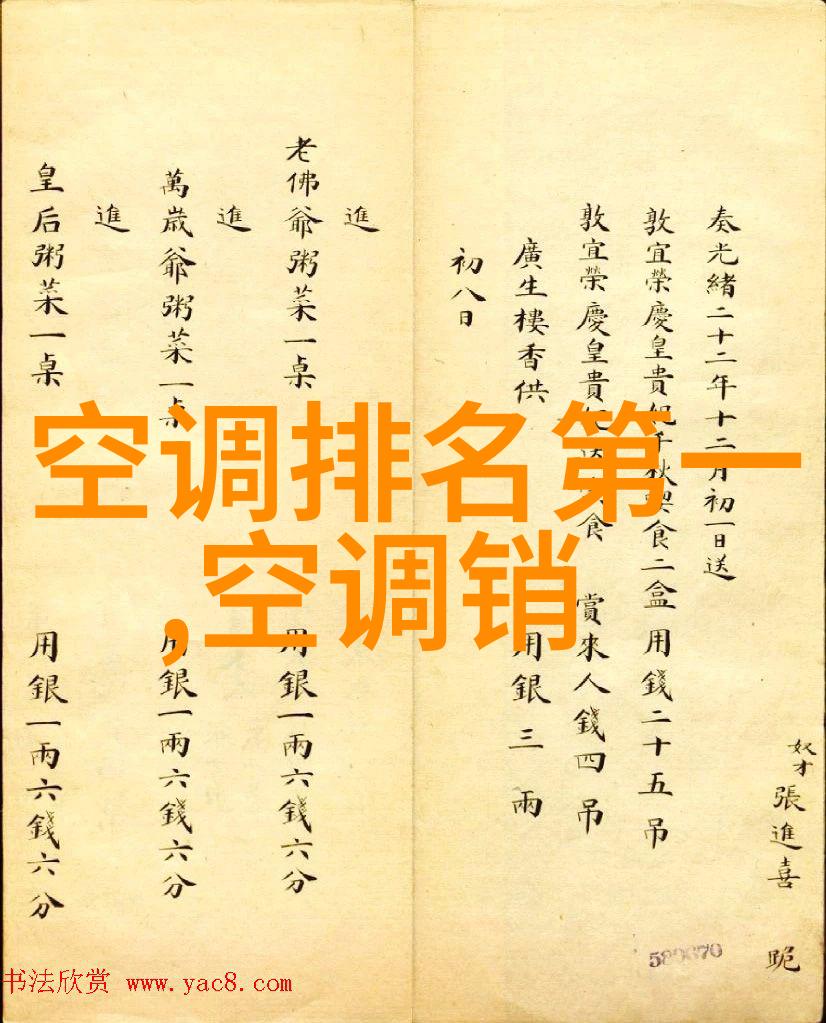 奴才張進喜 跪
奏光緒二十二年十二月初一日送
敦宜榮慶皇貴妃千秋喫食二盒用錢二十五吊
敦宜榮慶皇貴妃送食 賞來人錢四吊
廣生樓香供 用銀三兩
初八日
進
老佛爺粥菜一桌 用銀一兩六錢六分
進
萬歲爺粥菜一桌 用銀一兩六錢六分
進
皇后粥菜一桌 用銀一兩六錢六分
空调排名第一
,空调销
书法欣赏 www.yac8.com